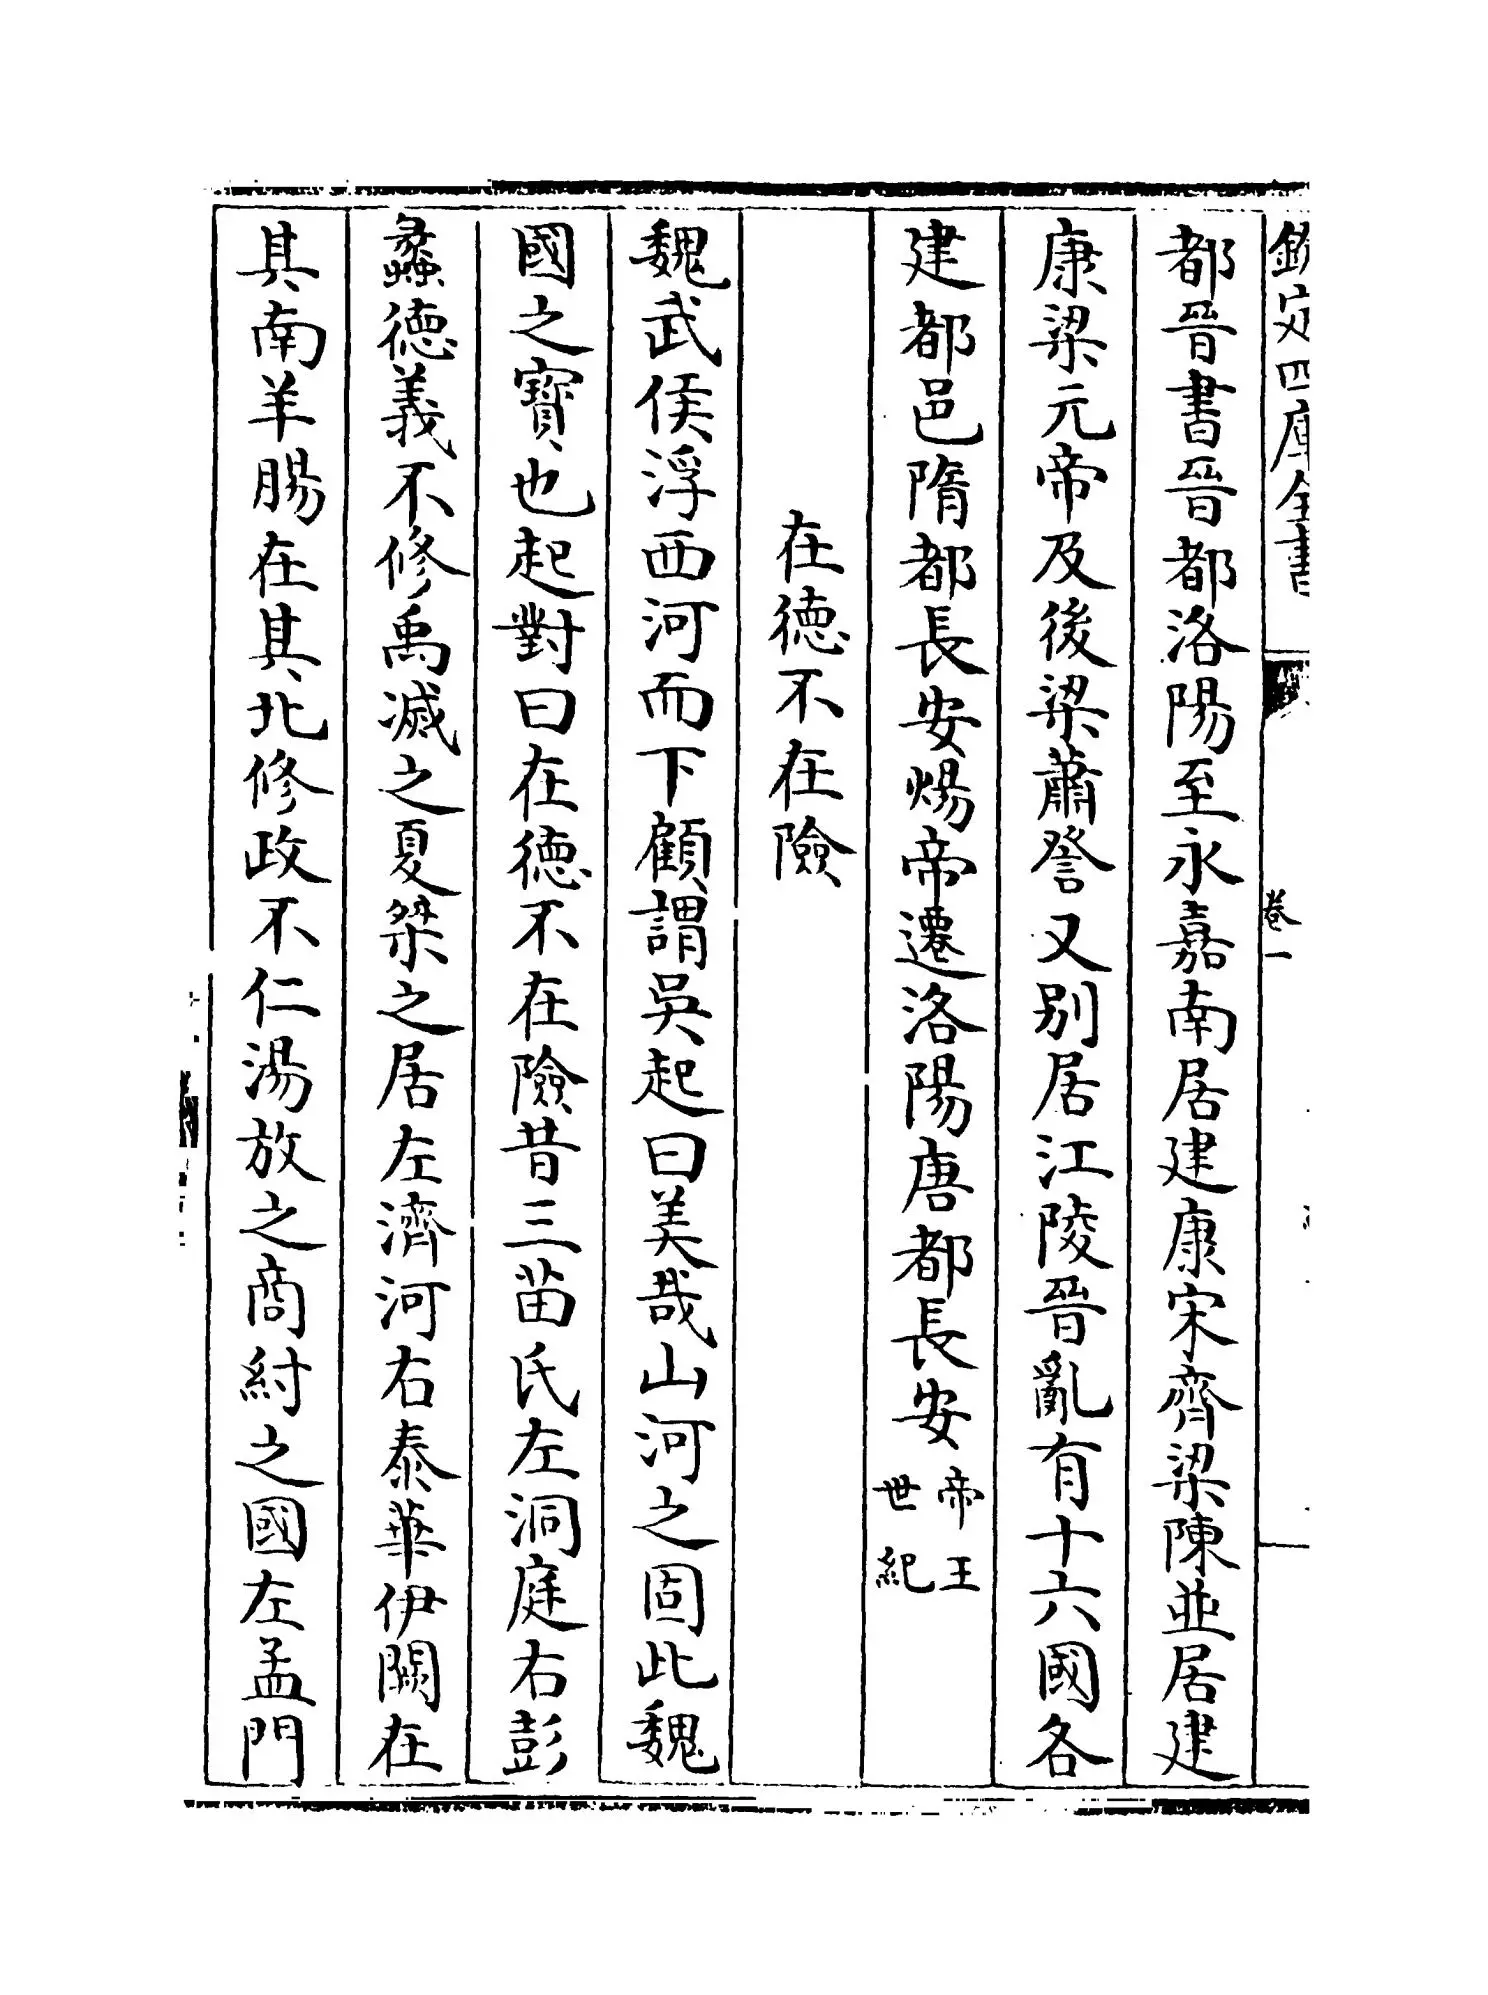 欽定四庫全書
卷一
都晉書晉都洛陽至永嘉南居建康宋齊梁陳並居建
康梁元帝及後梁蕭詧又別居江陵晉亂有十六國各
建都邑隋都長安煬帝遷洛陽唐都長安帝王
世紀
在德不在險
魏武侯浮西河而下顧謂吳起曰美哉山河之固此魏
國之寶也起對曰在德不在險昔三苗氏左洞庭右彭
蠡德義不修禹滅之夏桀之居左濟河右泰華伊闕在
其南羊腸在其北修政不仁湯放之商紂之國左孟門